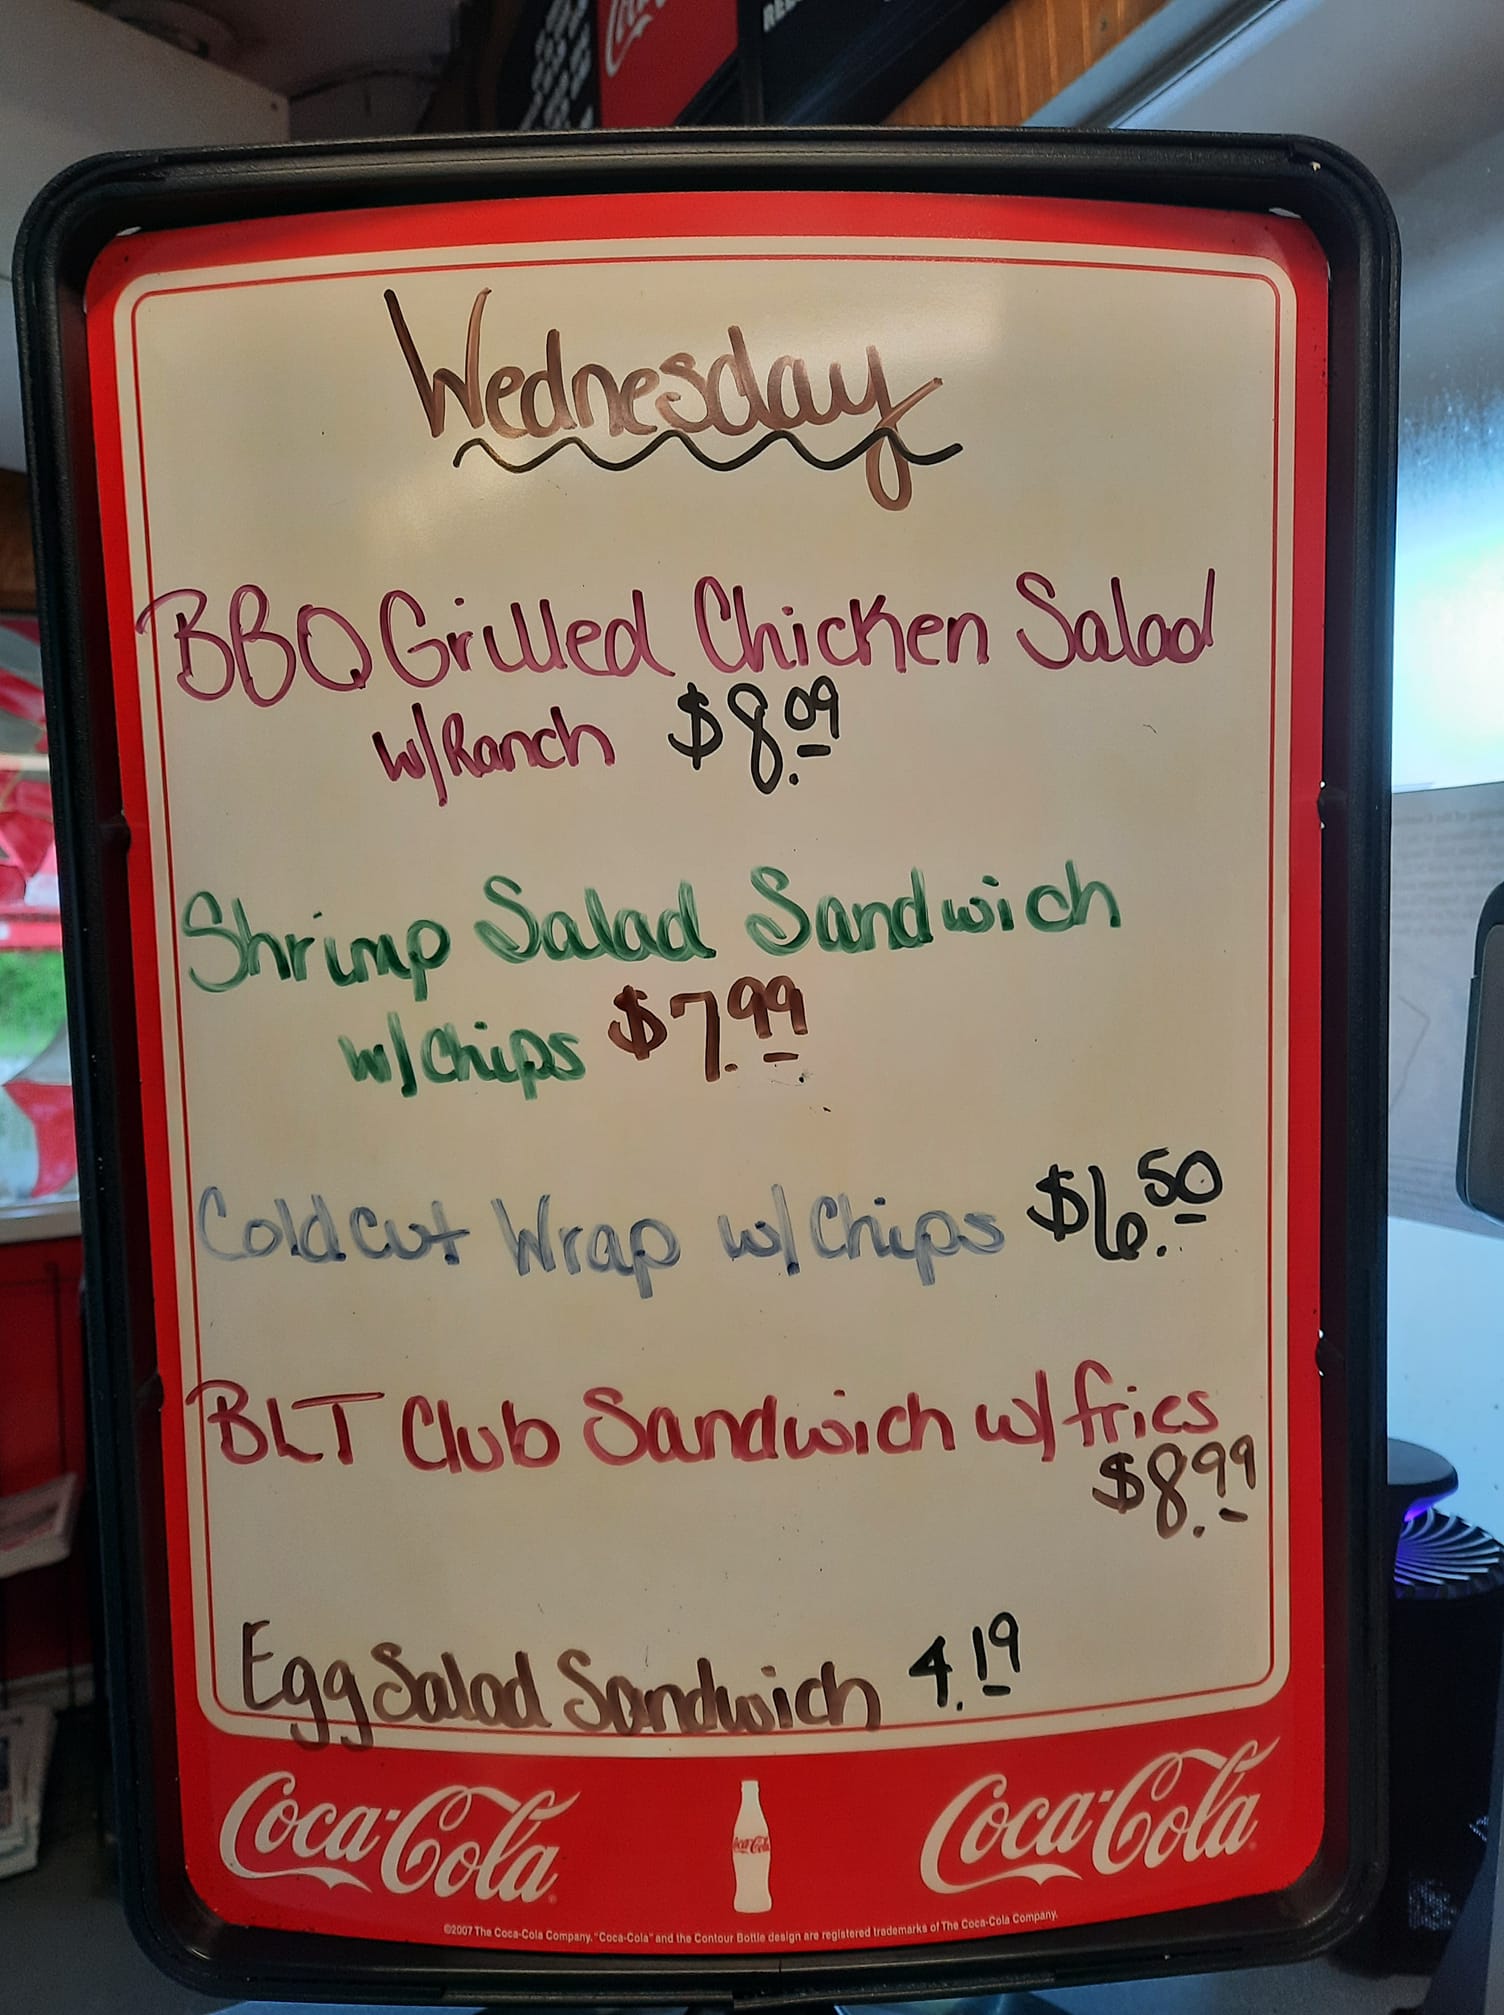 Wednesday
BBQ Grilled Chicken Salad
w/Ranch $8.09
Shrimp Salad Sandwich
w/Chips $7.99
Cold cut Wrap w/Chips $6.50
BLT Club Sandwich w/fries
$8.99
Egg Salad Sandwich 4.19
Coca-Cola Coca-Cola Coca-Cola
©2007 The Coca-Cola Company. "Coca-Cola" and the Contour Bottle design are registered trademarks of The Coca-Cola Company.